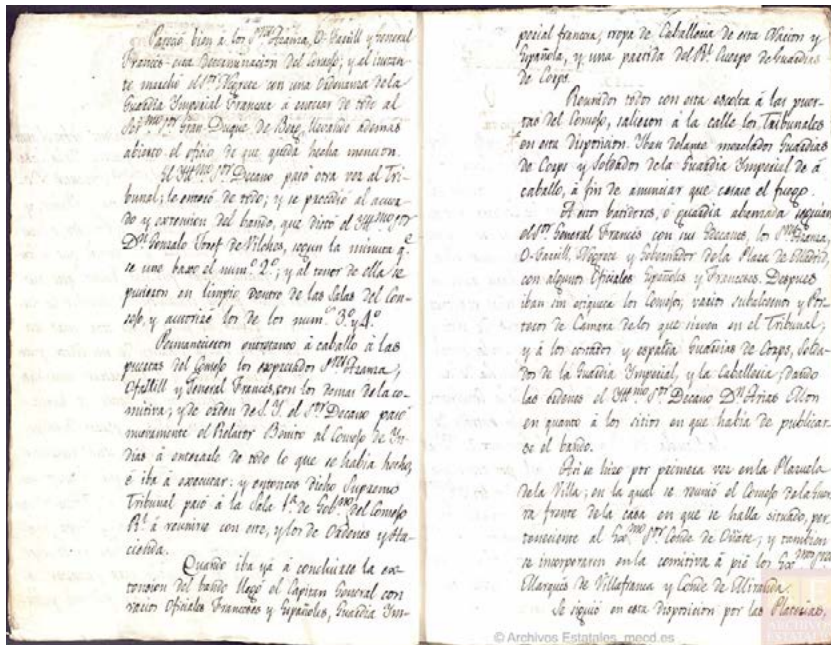 Pareció bien á los S.res Azanza, O-Farrill y General
Francés esta determinacion del Consejo; y al instan-
te marchó el S.or Negrete con una Ordenanza de la
Guardia Imperial Francesa á enterar de todo al
Ser.mo S.or Gran Duque de Berg, llevando ademas
abierto el oficio de que queda hecha mencion.
El Ill.mo S.or Decano pasó otra vez al Tri-
bunal; lo enteró de todo; y se procedió al acuer-
do y extension del bando, que dictó el Ill.mo S.or
D.n Gonzalo Josef de Vilches, segun la minuta q.e
se une baxo el num.o 2.o; y al tenor de ella se
pusieron en limpio dentro de las Salas del Con-
sejo, y autorizó los de los num.s 3.o y 4.o
Permanecieron entretanto á caballo á las
puertas del Consejo los expresados S.res Azanza,
Ofallill y General Francés, con los demas de la co-
mitiva; y de orden de S. I. el S.or Decano pasó
nuevamente el Relator Benito al Consejo de In-
dias á enterarle de todo lo que se habia hecho,
é iba á executar: y entonces dicho Supremo
Tribunal pasó á la Sala 1.a de Gob.no del Consejo
R.l á reunirse con este, y los de Ordenes y Ha-
cienda.
Quando iba yá á concluirse la ex-
tension del bando llegó el Capitan General con
varios Oficiales Franceses y Españoles, Guardia Im-
perial francesa, tropa de Caballeria de esta Nacion y
Española, y una partida del R.l Cuerpo de Guardias
de Corps.
Reunidos todos con esta escolta á las puer-
tas del Consejo, salieron á la calle los Tribunales
en esta disposicion. Iban delante mezclados Guardias
de Corps y Soldados de la Guardia Imperial de á
caballo, á fin de anunciar que cesase el fuego.
A estos batidores, ó guardia abanzada seguian
el S.or General Francés con sus Edecanes, los S.res Azanza,
O-Farrill, Negrete y Gobernador de la Plaza de Madrid,
con algunos Oficiales Españoles y Franceses. Despues
iban sin etiqueta los Consejos; varios subalternos y Por-
teros de Camara de los que sirven en el Tribunal;
y á los costados y espalda Guardias de Corps, Solda-
dos de la Guardia Imperial, y la Caballeria; dando
las ordenes el Ill.mo S.or Decano D.n Arias Mon
en quanto á los sitios en que habia de publicar-
se el bando.
Asi se hizo por primera vez en la Plazuela
de la Villa; en la qual se reunió el Consejo de la Guer-
ra frente de la casa en que se halla situado, per-
teneciente al Ex.mo S.or Conde de Oñate; y tambien
se incorporaron en la comitiva á pie los Ex.mos S.res
Marqués de Villafranca y Conde de Miranda.
Se siguió en esta disposicion por las Platerias,
© Archivos Estatales, mecd.es
ARCHIVOS
ESTATALES